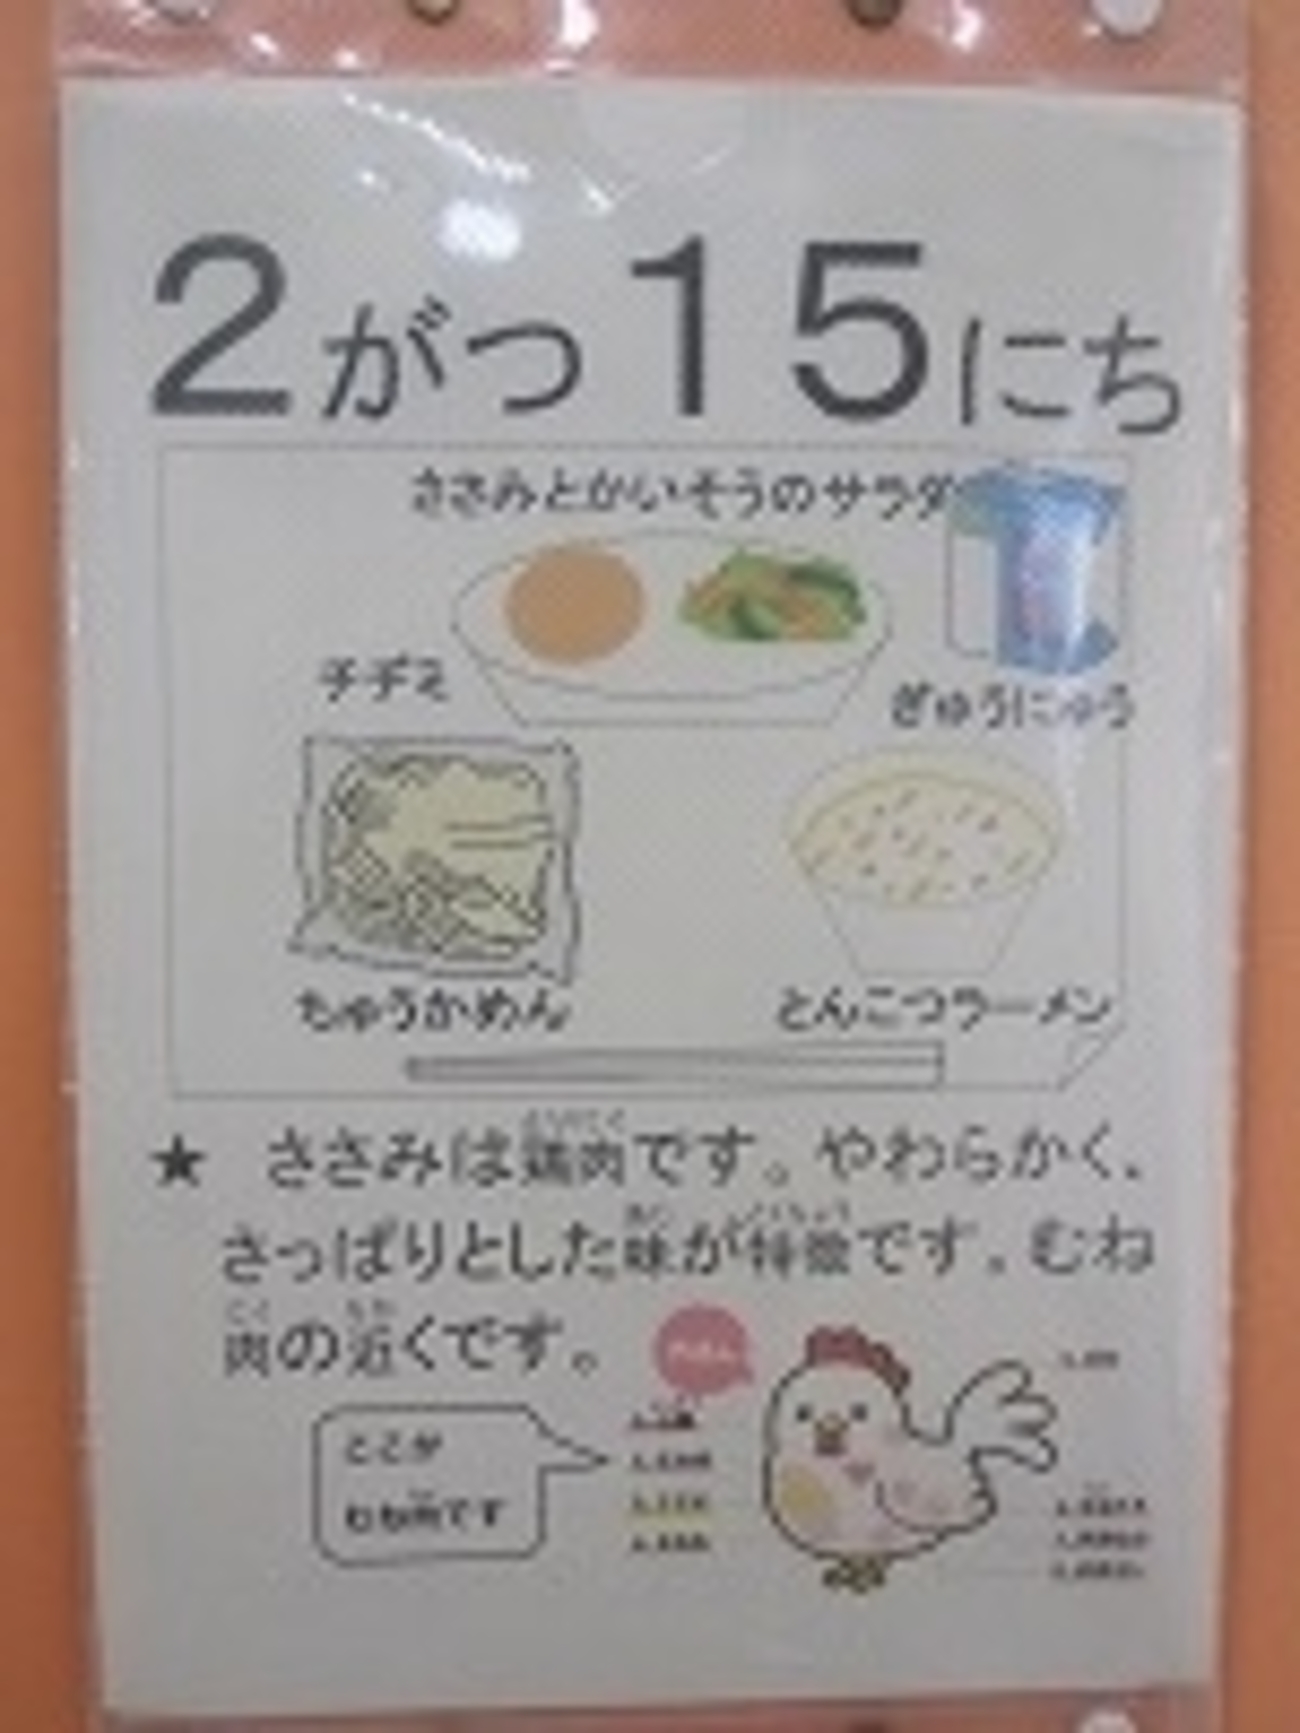 2がつ15にち
ささみとかいそうのサラダ
チヂミ
ぎゅうにゅう
ちゅうかめん
とんこつラーメン
★ ささみは鶏肉です。やわらかく、
さっぱりとした味が特徴です。むね
肉の近くです。
ここが
むね肉です